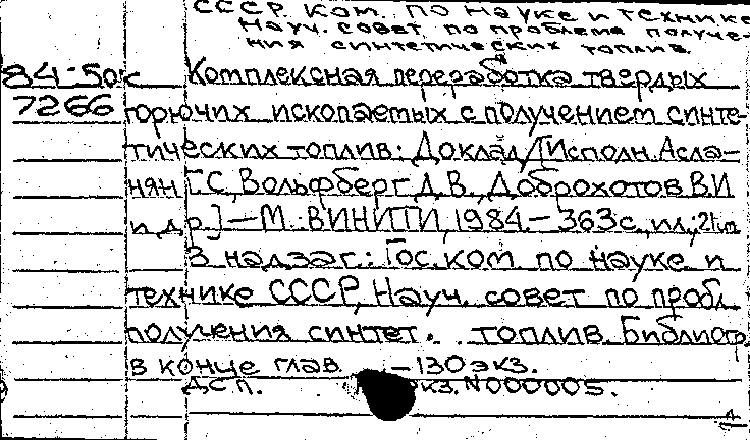 СССР. Ком. по науке и технике
Науч. совет по проблеме получе-
ния синтетических топлив
84-50к Комплексная переработка твердых
7266 горючих ископаемых с получением синте-
тических топлив: Доклад/[Исполн. Асла-
нян Г.С., Вольфберг Д.В., Доброхотов В.И
и др.] — М.: ВИНИТИ, 1984. — 363 с., ил.; 21 см
В надзаг.: Гос. ком по науке и
технике СССР, Науч. совет по пробл
получения синтет. топлив. Библиогр.
в конце глав. — 130 экз.
ДСП. экз. N000005.